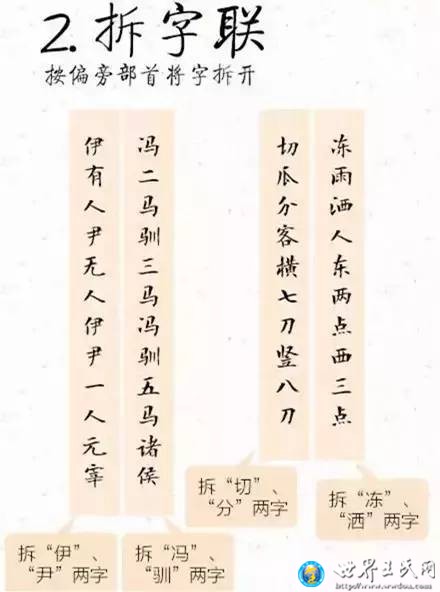 2.拆字联
按偏旁部首将字拆开
冻雨洒人东两点西三点
切瓜分客横七刀竖八刀
冯二马驯三马冯驯五马诸侯
伊有人尹无人伊尹一人元宰
拆“冻”、
“洒”两字
拆“切”、
“分”两字
拆“冯”、
“驯”两字
拆“伊”、
“尹”两字
世界王氏网
http://www.wwdoou.com